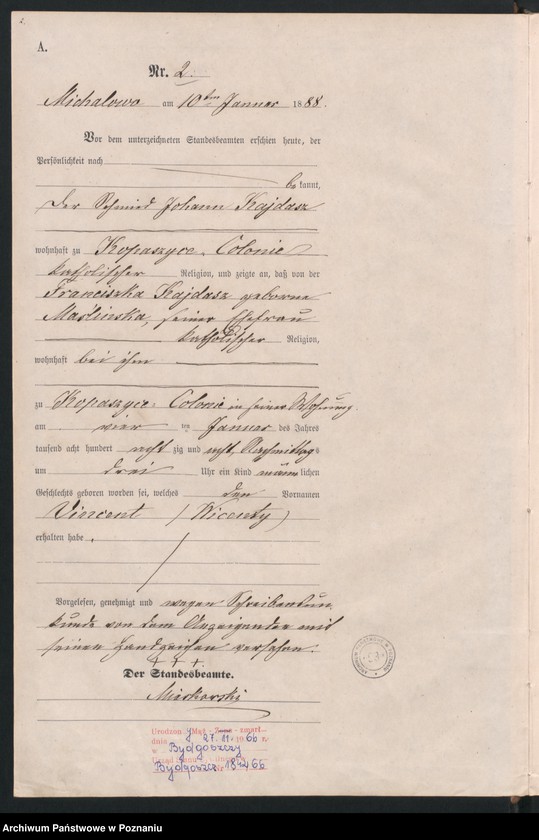 A.
Nr. 2.
Michalowo am 10ten Januar 1888.
Vor dem unterzeichneten Standesbeamten erschien heute, der
Persönlichkeit nach
bekannt,
der Schmied Johann Kajdasz
wohnhaft zu Kopaszyce-Colonie
katholischer Religion, und zeigte an, daß von der
Franciszka Kajdasz geborne
Maślinska, seiner Ehefrau
katholischer Religion,
wohnhaft bei ihm
zu Kopaszyce-Colonie in seiner Wohnung
am vier ten Januar des Jahres
tausend acht hundert acht zig und acht, Nachmittags
um drei Uhr ein Kind männlichen
Geschlechts geboren worden sei, welches den Vornamen
Vincent (Wicenty)
erhalten habe.
Vorgelesen, genehmigt und wegen Schreibensun
kunde von dem Anzeigenden mit
seinem Handzeichen versehen.
+ + +
Der Standesbeamte.
Urodzony Mąż - Żona - zmarł
dnia 27.11.1966 r.
w Bydgoszczy
Urząd Stanu
Bydgoszcz
Archiwum Państwowe w Poznaniu